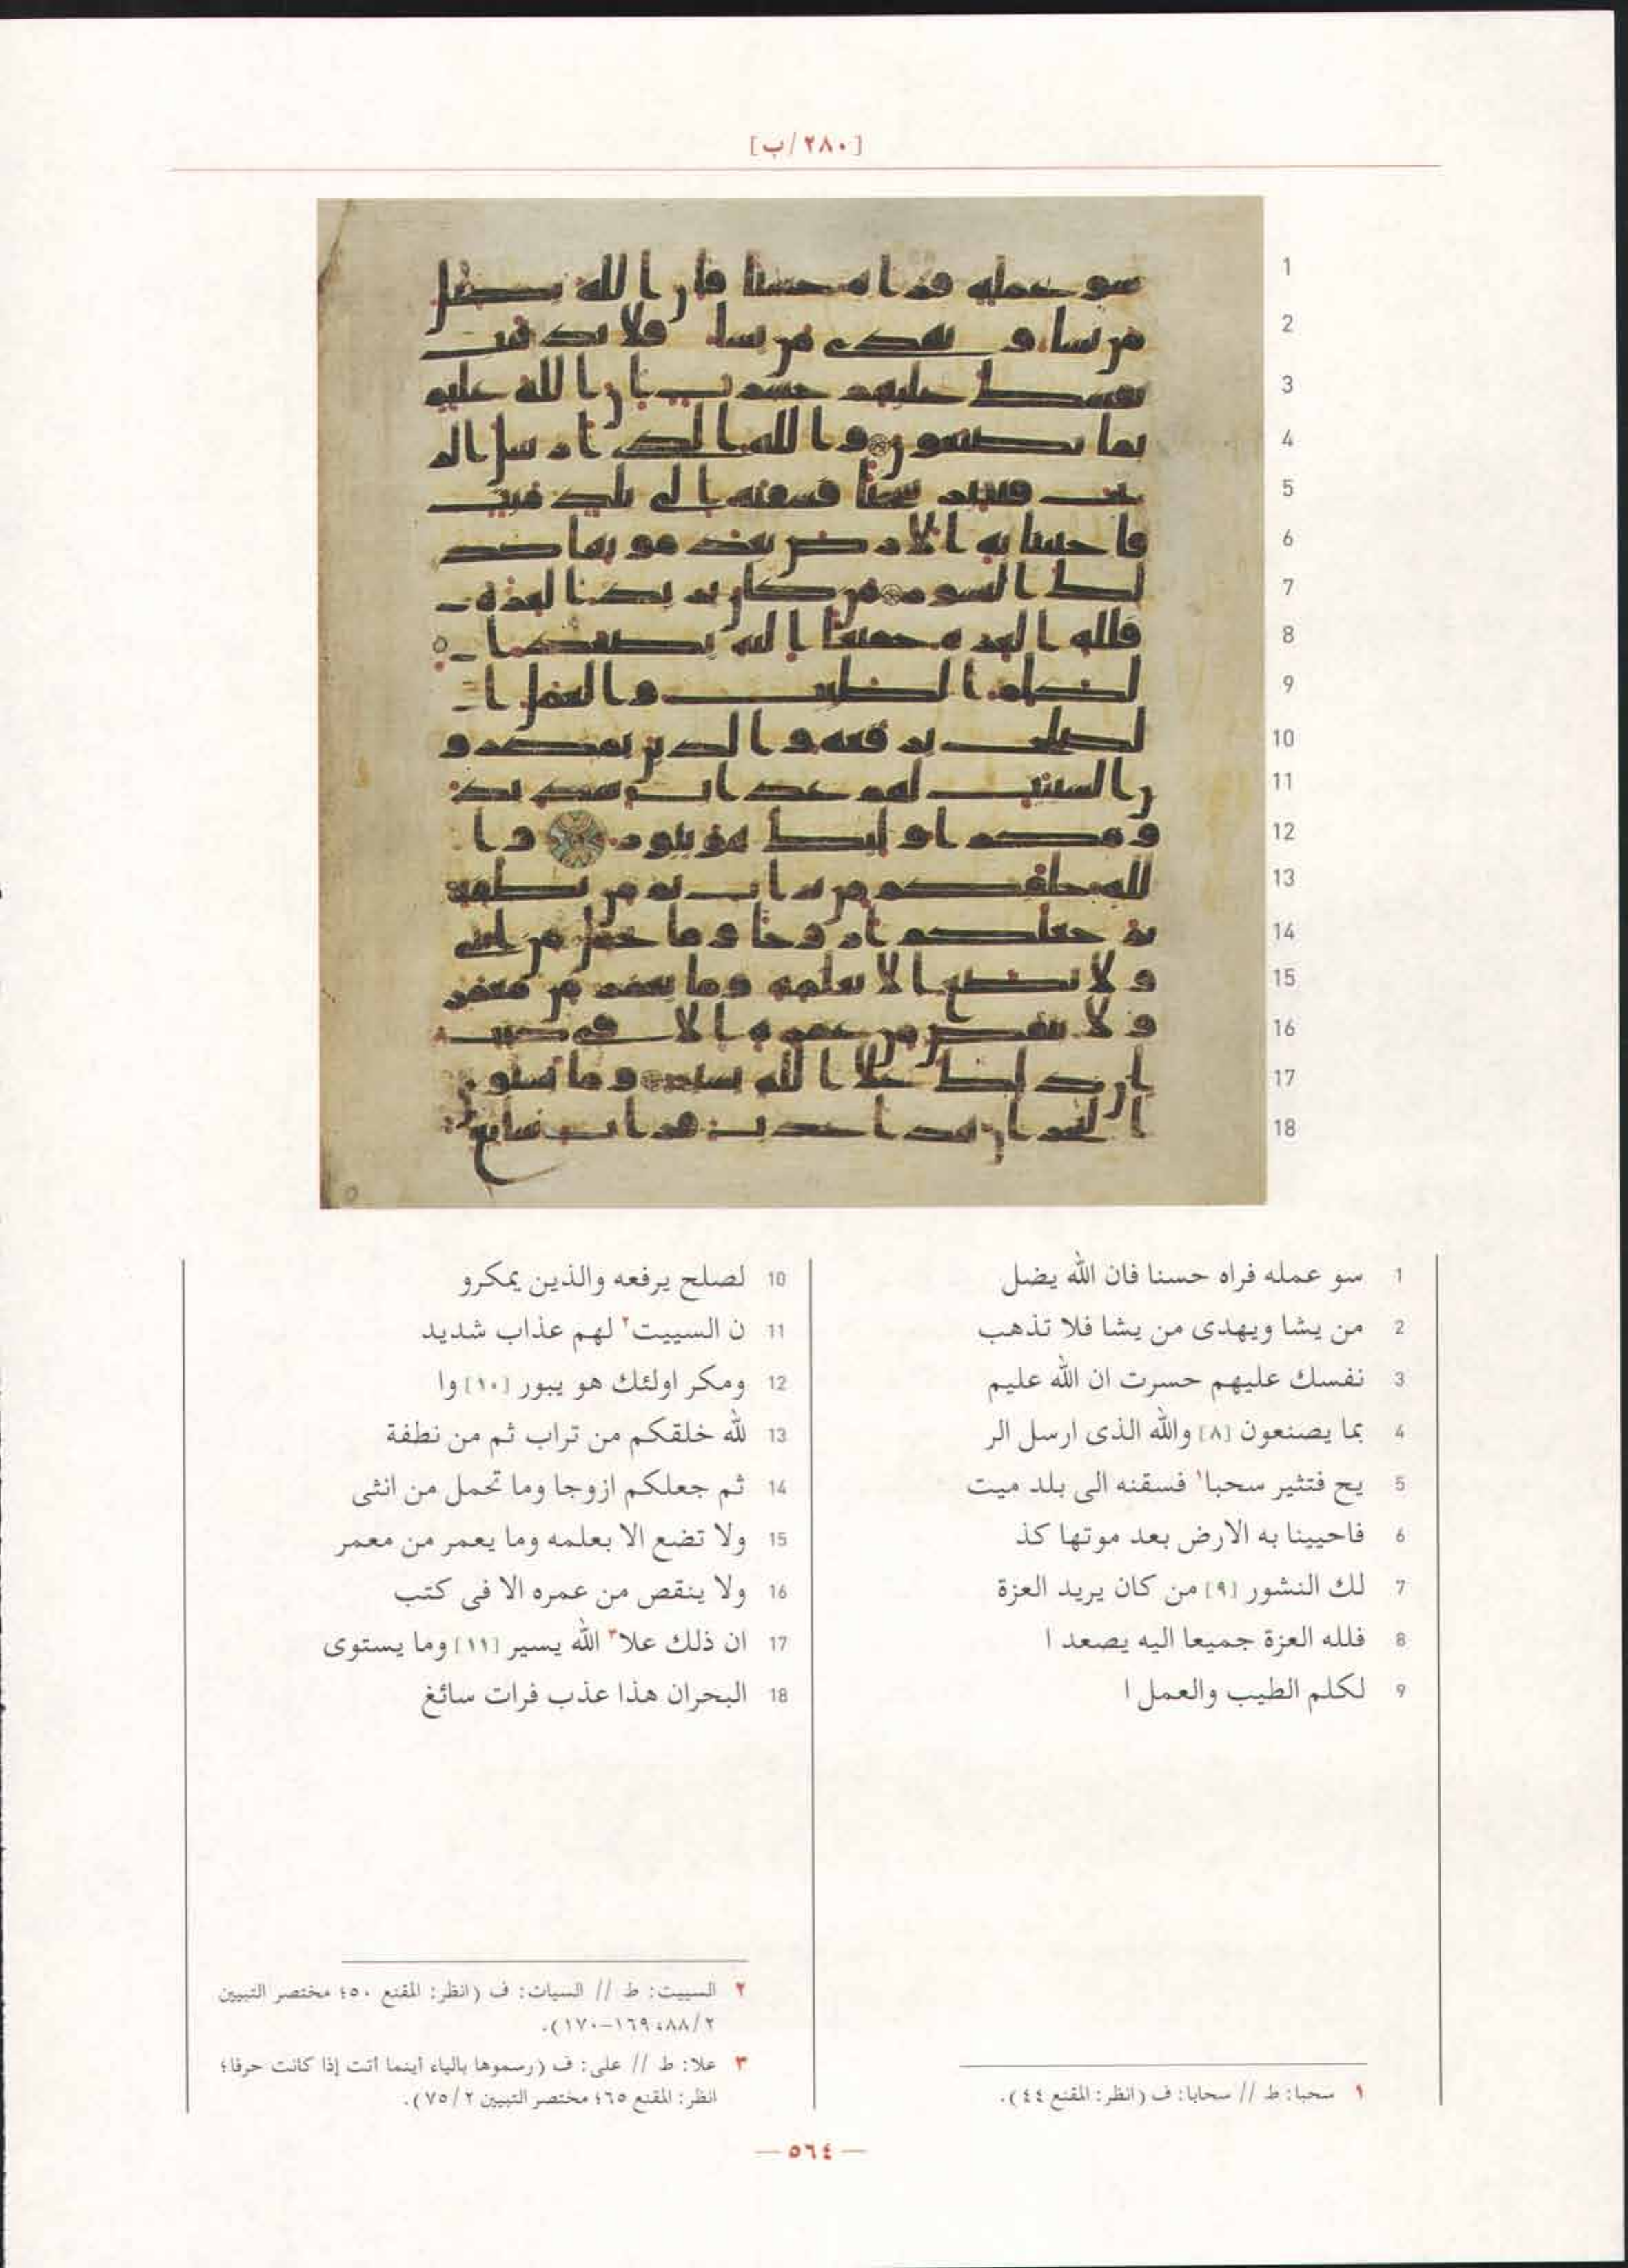 [٢٨٠/ب]
1 سو عمله فراه حسنا فان الله يضل
2 من يشا ويهدى من يشا فلا تذهب
3 نفسك عليهم حسرت ان الله عليم
4 بما يصنعون [٨] والله الذى ارسل الر
5 يح فتثير سحبا١ فسقنه الى بلد ميت
6 فاحيينا به الارض بعد موتها كذ
7 لك النشور [٩] من كان يريد العزة
8 فلله العزة جميعا اليه يصعد ا
9 لكلم الطيب والعمل ا
10 لصلح يرفعه والذين يمكرو
11 ن السييت٢ لهم عذاب شديد
12 ومكر اولئك هو يبور [١٠] وا
13 لله خلقكم من تراب ثم من نطفة
14 ثم جعلكم ازوجا وما تحمل من انثى
15 ولا تضع الا بعلمه وما يعمر من معمر
16 ولا ينقص من عمره الا فى كتب
17 ان ذلك علا٣ الله يسير [١١] وما يستوى
18 البحران هذا عذب فرات سائغ
١ سحبا: ط // سحابا: ف (انظر: المقنع ٤٤).
٢ السييت: ط // السيات: ف (انظر: المقنع ٥٠؛ مختصر التبيين
٢/٨٨، ١٦٩–١٧٠).
٣ علا: ط // على: ف (رسموها بالياء أينما أتت إذا كانت حرفا؛
انظر: المقنع ٦٥؛ مختصر التبيين ٢/٧٥).
— ٥٦٤ —